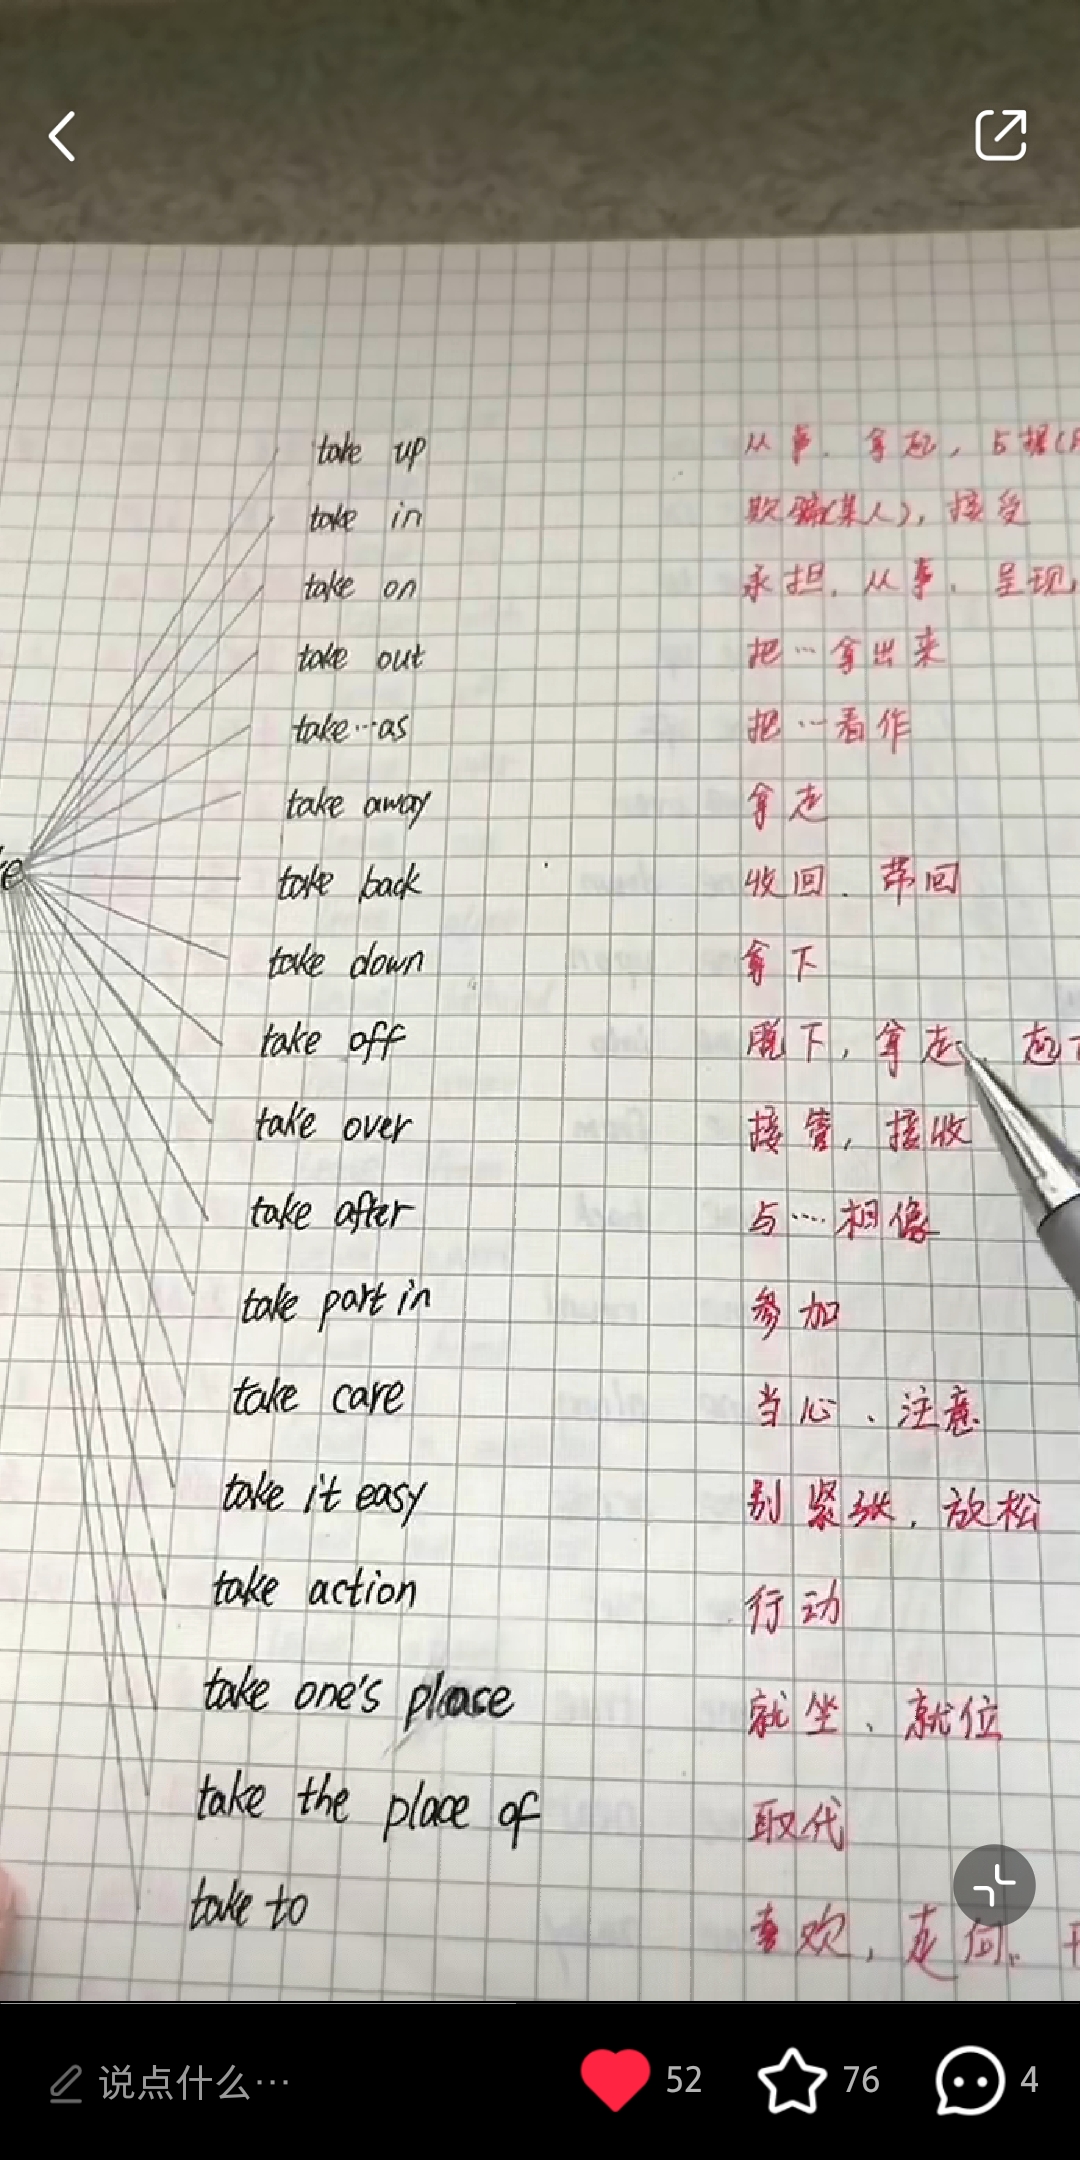 take up 从事、拿起，占据(
take in 欺骗(某人)，接受
take on 承担、从事、呈现，
take out 把…拿出来
take…as 把…看作
take away 拿走
take back 收回、带回
take down 拿下
take off 脱下，拿走、起
take over 接管，接收
take after 与…相像
take part in 参加
take care 当心、注意
take it easy 别紧张，放松
take action 行动
take one's place 就坐、就位
take the place of 取代
take to 喜欢，走向、
说点什么… 52 76 4